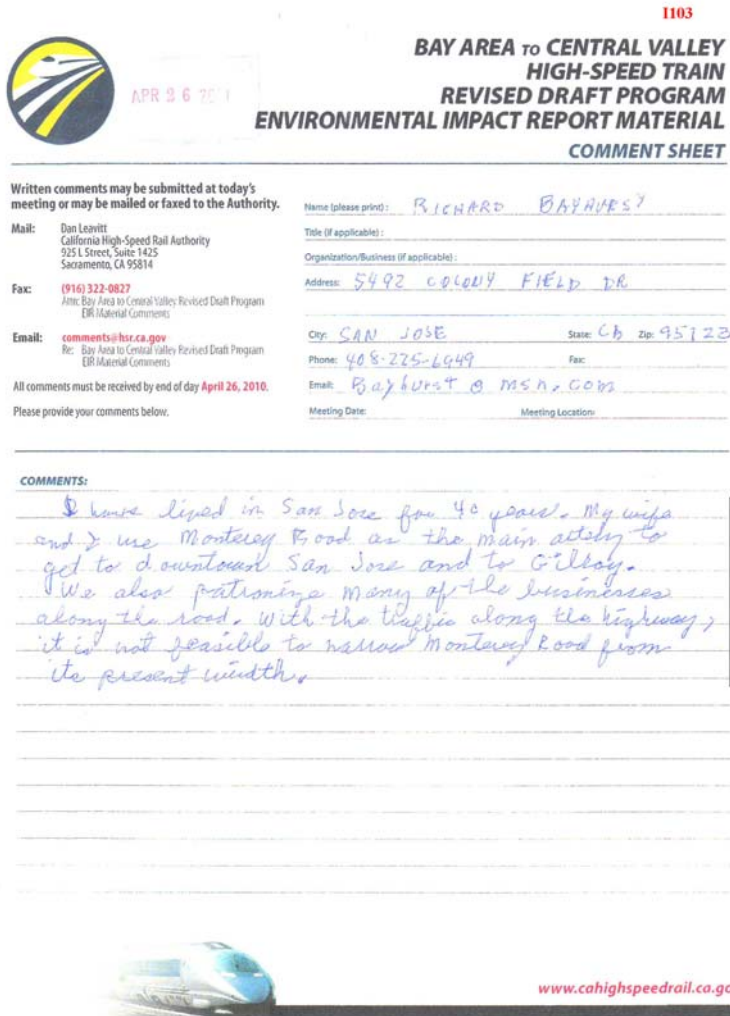 I103
BAY AREA TO CENTRAL VALLEY
HIGH-SPEED TRAIN
REVISED DRAFT PROGRAM
ENVIRONMENTAL IMPACT REPORT MATERIAL
COMMENT SHEET
APR 26
Written comments may be submitted at today's
meeting or may be mailed or faxed to the Authority.
Mail: Dan Leavitt
California High-Speed Rail Authority
925 L Street, Suite 1425
Sacramento, CA 95814
Fax: (916) 322-0827
Attn: Bay Area to Central Valley Revised Draft Program
EIR Material Comments
Email: comments@hsr.ca.gov
Re: Bay Area to Central Valley Revised Draft Program
EIR Material Comments
All comments must be received by end of day April 26, 2010.
Please provide your comments below.
Name (please print): RICHARD BAYHURST
Title (if applicable):
Organization/Business (if applicable):
Address: 5492 COLONY FIELD DR
City: SAN JOSE State: CA Zip: 95123
Phone: 408-225-6949 Fax:
Email: Bayhurst@msn.com
Meeting Date: Meeting Location:
COMMENTS:
I have lived in San Jose for 40 years. My wife
and I use Monterey Road as the main artery to
get to downtown San Jose and to Gilroy.
We also patronize many of the businesses
along the road. With the traffic along the highway,
it is not feasible to narrow Monterey Road from
its present width.
www.cahighspeedrail.ca.go